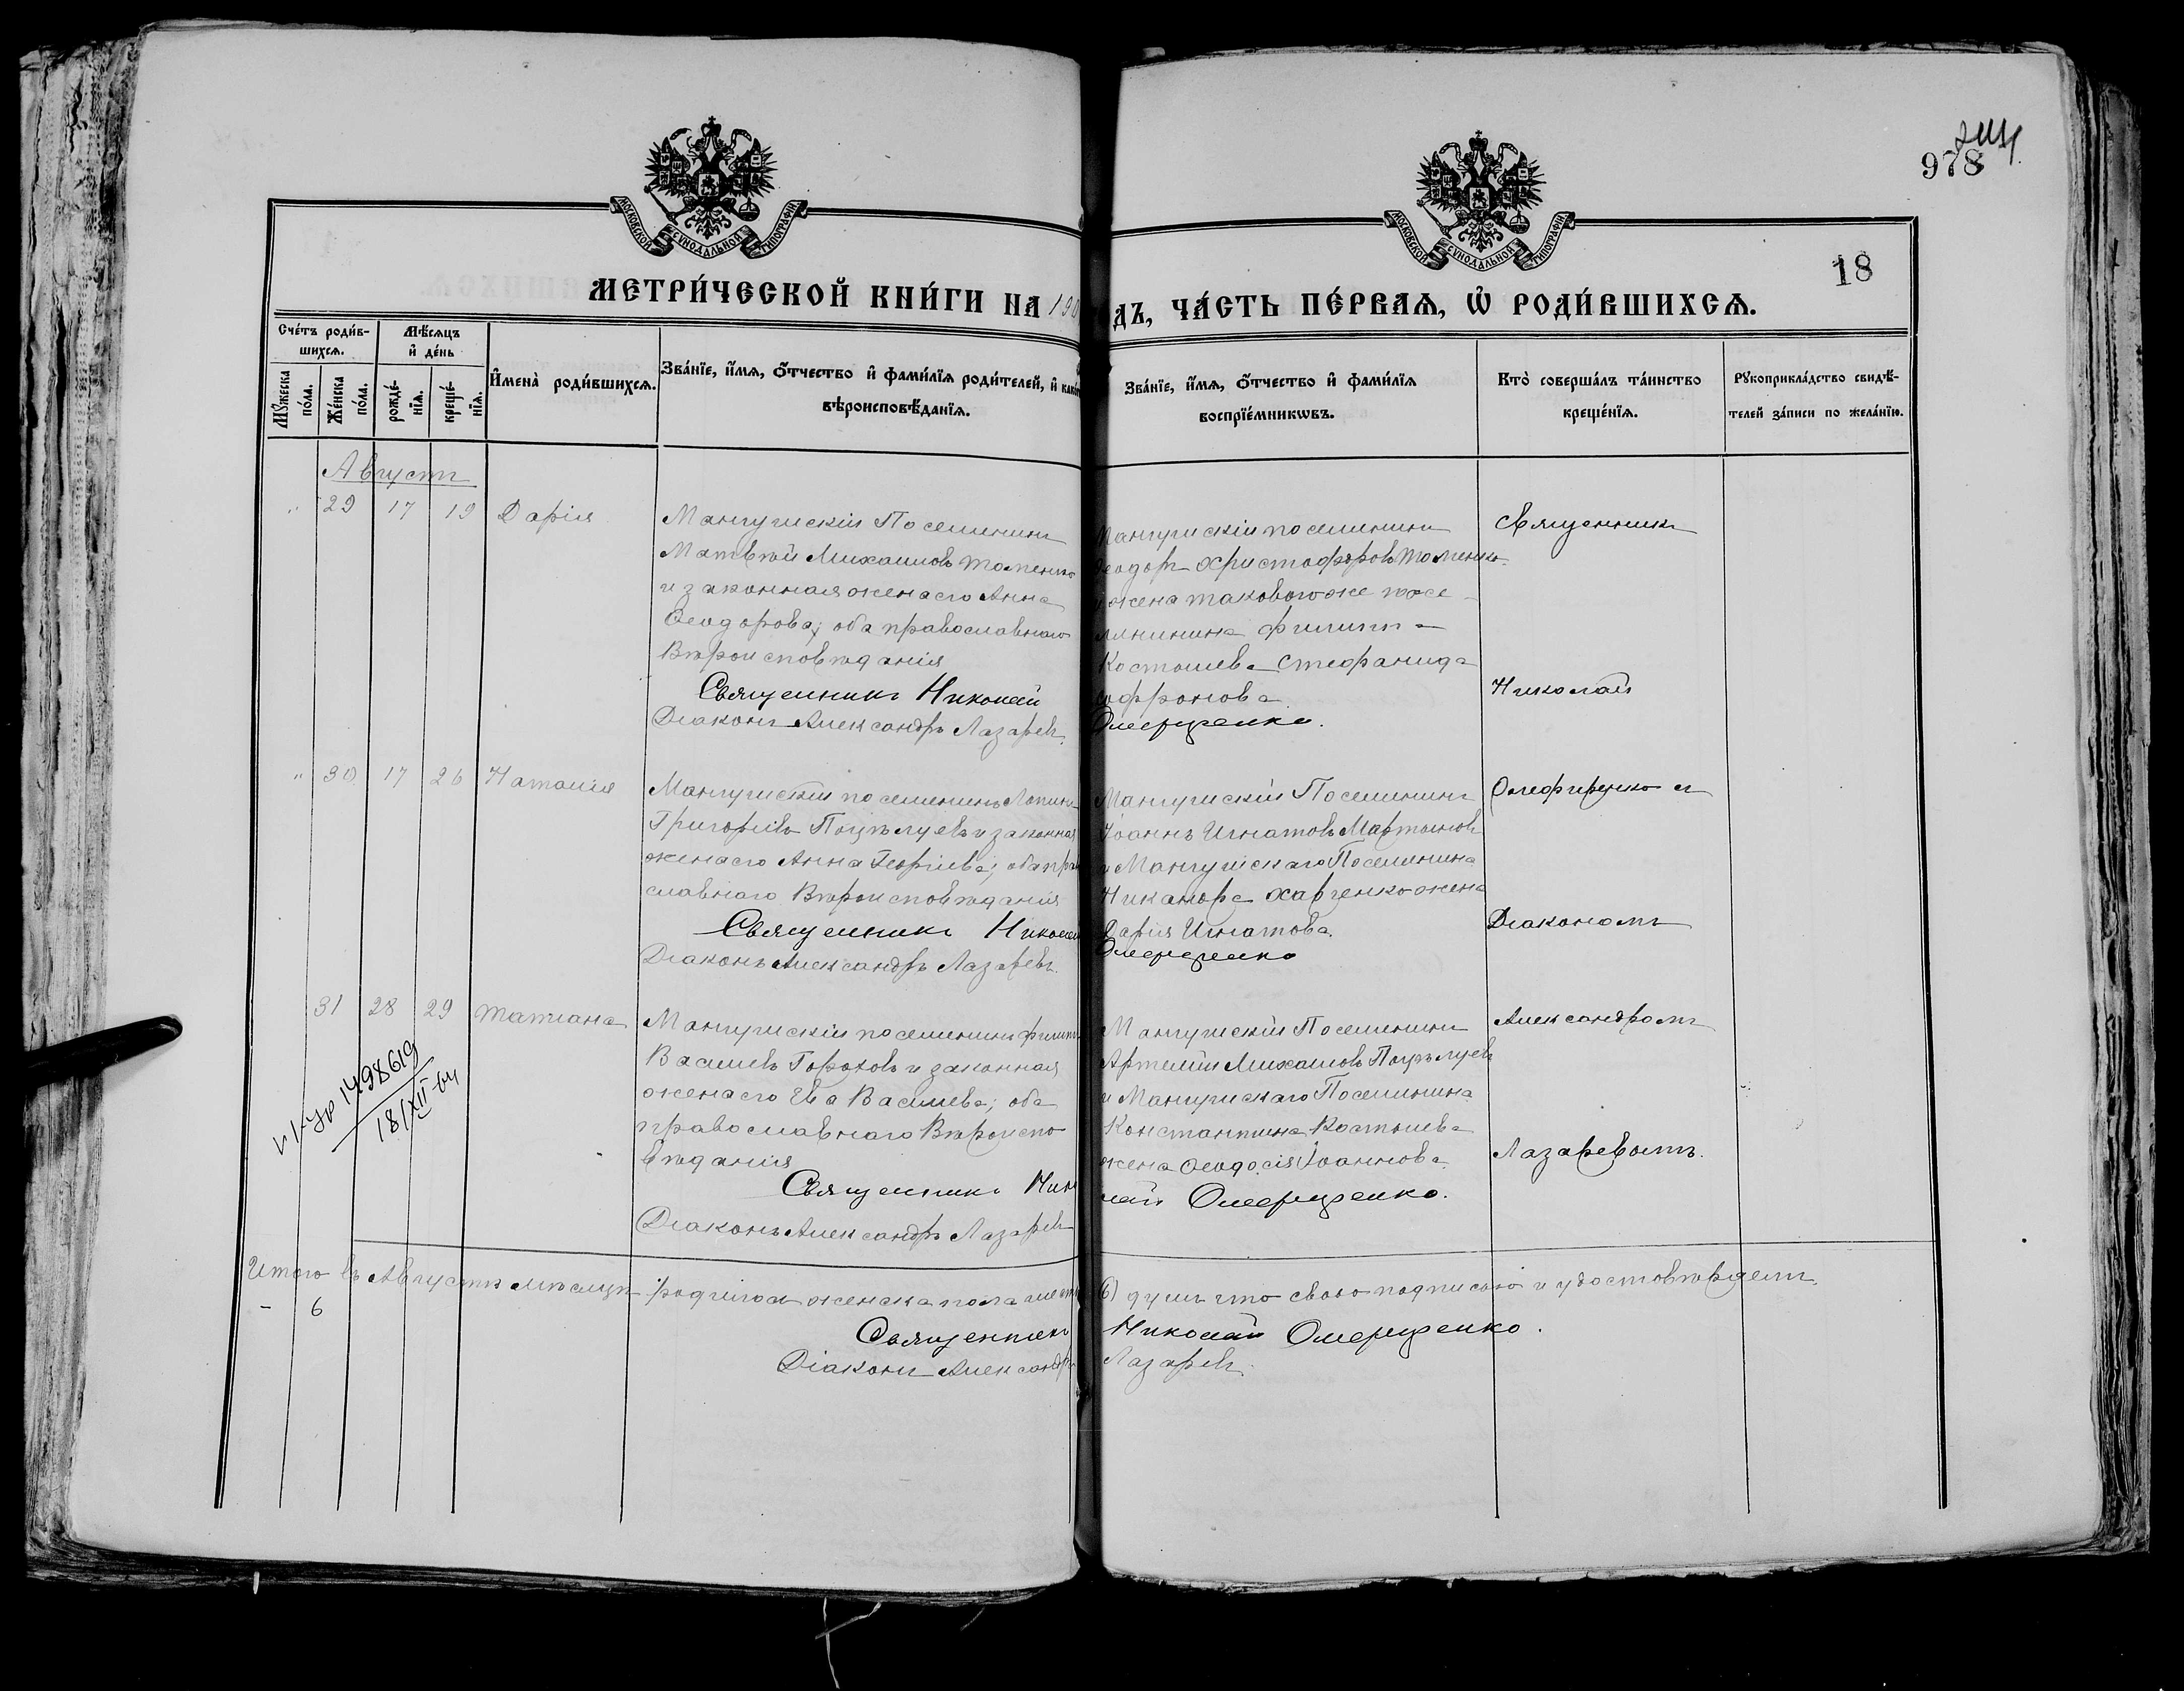 978
18
МОСКОВСКОЙ СѴНОДАЛЬНОЙ ТИПОГРАФІИ
МОСКОВСКОЙ СѴНОДАЛЬНОЙ ТИПОГРАФІИ
МЕТРИ́ЧЕСКОЙ КНИ́ГИ НА 190
ДЪ, ЧА́СТЬ ПЕ́РВАЯ, Ѡ҆ РОДИ́ВШИХСЯ.
Сче́тъ роди́в-
шихся.
Мѣ́сяцъ
и҆ де́нь
Му́жеска
по́ла.
Же́нска
по́ла.
рожде́-
нїя.
креще́-
нїя.
И҆мена̀ роди́вшихся.
Зва́нїе, и҆́мя, ѻ҆́тчество и҆ фами́лїя роди́телей, и҆ как
вѣроисповѣ́данїя.
Зва́нїе, и҆́мя, ѻ҆́тчество и҆ фами́лїя
воспрїе́мникѡвъ.
Кто̀ соверша́лъ та́инство
креще́нїя.
Рꙋкоприкла́дство свидѣ́-
телей за́писи по жела́нїю.
Августъ
" 29 17 19 Дарія
Мангушскій Поселянинъ
Матвѣй Михаиловъ Томенко
и законная жена его Анна
Ѳеодорова; оба православнаго
Вѣроисповѣданія
Священникъ Николай
Діаконъ Александръ Лазаревъ.
Мангушскій поселянинъ
Ѳеодоръ Христофоровъ Томенко
и жена таковаго же посе-
лянина Филиппа
Костышева Стефанида
Софронова.
Олеферченко.
Священникъ
Николай
" 30 17 26 Наталія
Мангушскій поселянинъ Логинъ
Григоріевъ Поцѣлуевъ и законная
жена его Анна Георгіева; оба пра
славнаго Вѣроисповѣданія
Священникъ Николай
Діаконъ Александръ Лазаревъ.
Мангушскій Поселянинъ
Іоаннъ Игнатовъ Мартыновъ
и Мангушскаго Поселянина
Никанора Харченко жена
Дарія Игнатова.
Олеферченко
Олеферченко съ
Діакономъ
31 28 29 Татіана
Мангушскій поселянинъ Филиппъ
Васильевъ Гороховъ и законная
жена его Ева Васильева; оба
православнаго Вѣроиспо
вѣданія
Священникъ Ник
Діаконъ Александръ Лазаревъ
Мангушскій Поселянинъ
Артемій Михаиловъ Поцѣлуевъ
и Мангушскаго Поселянина
Константина Костышева
жена Ѳеодосія Іоаннова.
лай Олеферченко.
Александромъ
Лазаревымъ.
1498619
18/XII-64
Итого въ Августѣ мѣсяцѣ родилось женска пола шесть
(6) душъ что своею подписью и удостовѣряемъ
- 6
Священникъ
Николай Олеферченко.
Діаконъ Александръ
Лазаревъ.